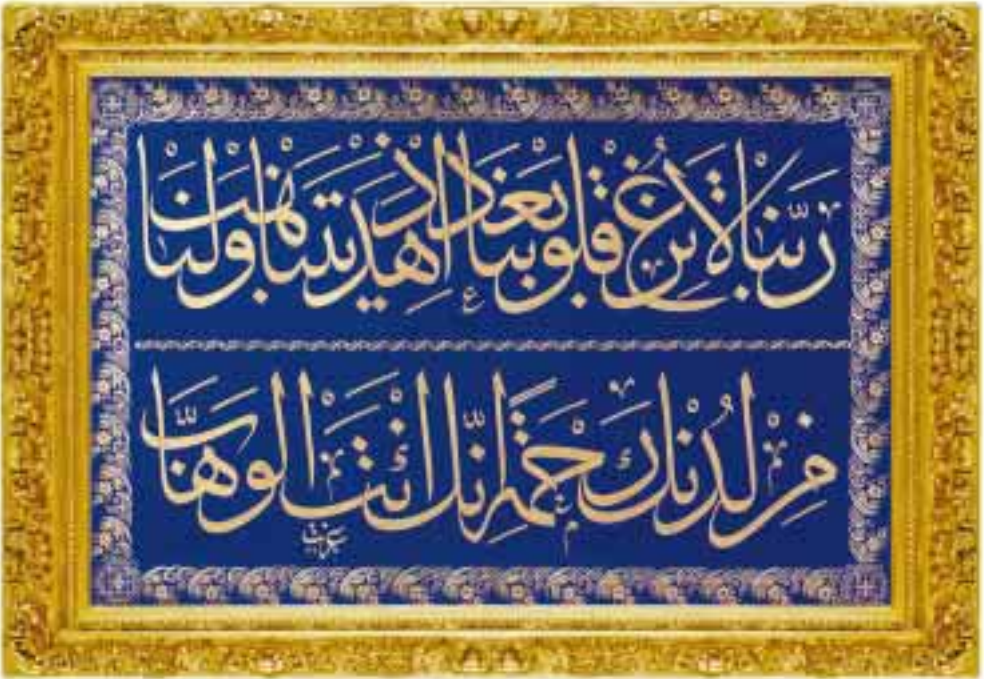 ربنا لا تزغ قلوبنا بعد اذ هديتنا وهب لنا
من لدنك رحمة انك انت الوهاب
عزت